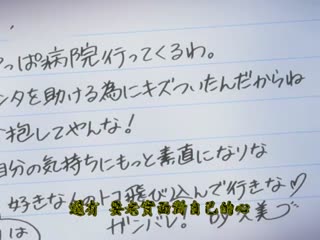 っぱ病院行ってくるわ。
ンタを助ける為にキズついたんだからね
抱してやんな！
自分の気持ちにもっと素直になりな
好きな人のトコ飛び込んで行きな♡
還有 要老實面對自己的心
は
ガンバレ。